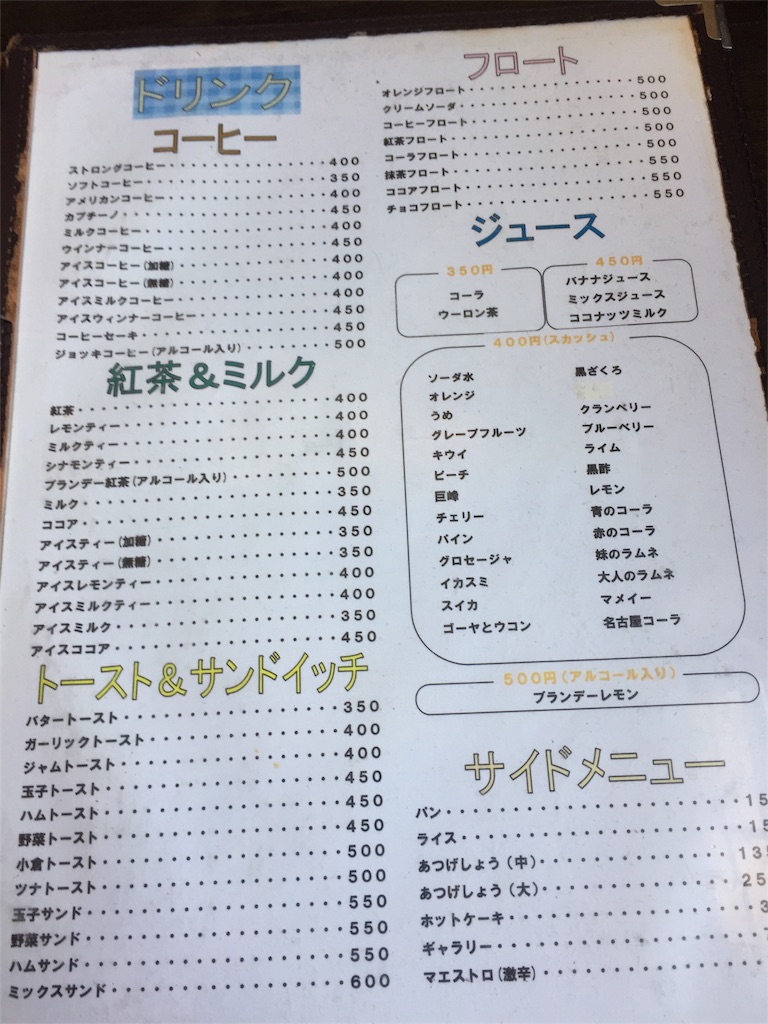 ドリンク
コーヒー
ストロングコーヒー・・・・・・・・・・・・・・・400
ソフトコーヒー・・・・・・・・・・・・・・・350
アメリカンコーヒー・・・・・・・・・・・・・・・400
カプチーノ・・・・・・・・・・・・・・・450
ミルクコーヒー・・・・・・・・・・・・・・・400
ウインナーコーヒー・・・・・・・・・・・・・・・450
アイスコーヒー(加糖)・・・・・・・・・・・・・・・400
アイスコーヒー(無糖)・・・・・・・・・・・・・・・400
アイスミルクコーヒー・・・・・・・・・・・・・・・400
アイスウィンナーコーヒー・・・・・・・・・・・・・・・450
コーヒーセーキ・・・・・・・・・・・・・・・450
ジョッキコーヒー(アルコール入り)・・・・・・・・・500
紅茶＆ミルク
紅茶・・・・・・・・・・・・・・・400
レモンティー・・・・・・・・・・・・・・・400
ミルクティー・・・・・・・・・・・・・・・400
シナモンティー・・・・・・・・・・・・・・・450
ブランデー紅茶(アルコール入り)・・・・・・・・・500
ミルク・・・・・・・・・・・・・・・350
ココア・・・・・・・・・・・・・・・450
アイスティー(加糖)・・・・・・・・・・・・・・・350
アイスティー(無糖)・・・・・・・・・・・・・・・350
アイスレモンティー・・・・・・・・・・・・・・・400
アイスミルクティー・・・・・・・・・・・・・・・400
アイスミルク・・・・・・・・・・・・・・・350
アイスココア・・・・・・・・・・・・・・・450
トースト＆サンドイッチ
バタートースト・・・・・・・・・・・・・・・350
ガーリックトースト・・・・・・・・・・・・・・・400
ジャムトースト・・・・・・・・・・・・・・・400
玉子トースト・・・・・・・・・・・・・・・450
ハムトースト・・・・・・・・・・・・・・・450
野菜トースト・・・・・・・・・・・・・・・450
小倉トースト・・・・・・・・・・・・・・・500
ツナトースト・・・・・・・・・・・・・・・500
玉子サンド・・・・・・・・・・・・・・・550
野菜サンド・・・・・・・・・・・・・・・550
ハムサンド・・・・・・・・・・・・・・・550
ミックスサンド・・・・・・・・・・・・・・・600
フロート
オレンジフロート・・・・・・・・・・・・・・・500
クリームソーダ・・・・・・・・・・・・・・・500
コーヒーフロート・・・・・・・・・・・・・・・500
紅茶フロート・・・・・・・・・・・・・・・500
コーラフロート・・・・・・・・・・・・・・・500
抹茶フロート・・・・・・・・・・・・・・・550
ココアフロート・・・・・・・・・・・・・・・550
チョコフロート・・・・・・・・・・・・・・・550
ジュース
350円
コーラ
ウーロン茶
450円
バナナジュース
ミックスジュース
ココナッツミルク
400円(スカッシュ)
ソーダ水
オレンジ
うめ
グレープフルーツ
キウイ
ピーチ
巨峰
チェリー
パイン
グロセージャ
イカスミ
スイカ
ゴーヤとウコン
黒ざくろ
クランベリー
ブルーベリー
ライム
黒酢
レモン
青のコーラ
赤のコーラ
妹のラムネ
大人のラムネ
マメイー
名古屋コーラ
500円(アルコール入り)
ブランデーレモン
サイドメニュー
パン・・・・・・・・・・・・・・・15
ライス・・・・・・・・・・・・・・・15
あつげしょう(中)・・・・・・・・・・・・135
あつげしょう(大)・・・・・・・・・・・・25
ホットケーキ・・・・・・・・・・・・・・・3
ギャラリー・・・・・・・・・・・・・・・
マエストロ(激辛)・・・・・・・・・・・・